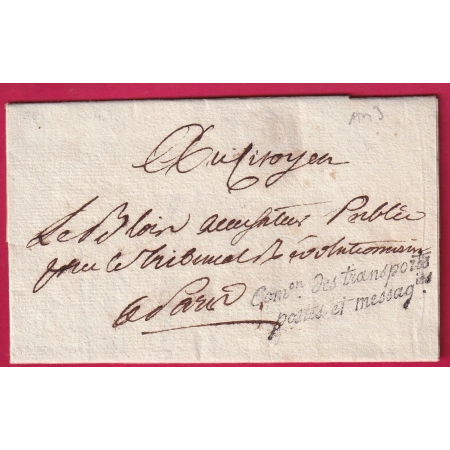 an 3
Au Citoyen
Le Blois accusateur Public
pres le tribunal de révolutionnaire
a Paris
Comᵒⁿ des transports
postes et messagⁱᵉˢ